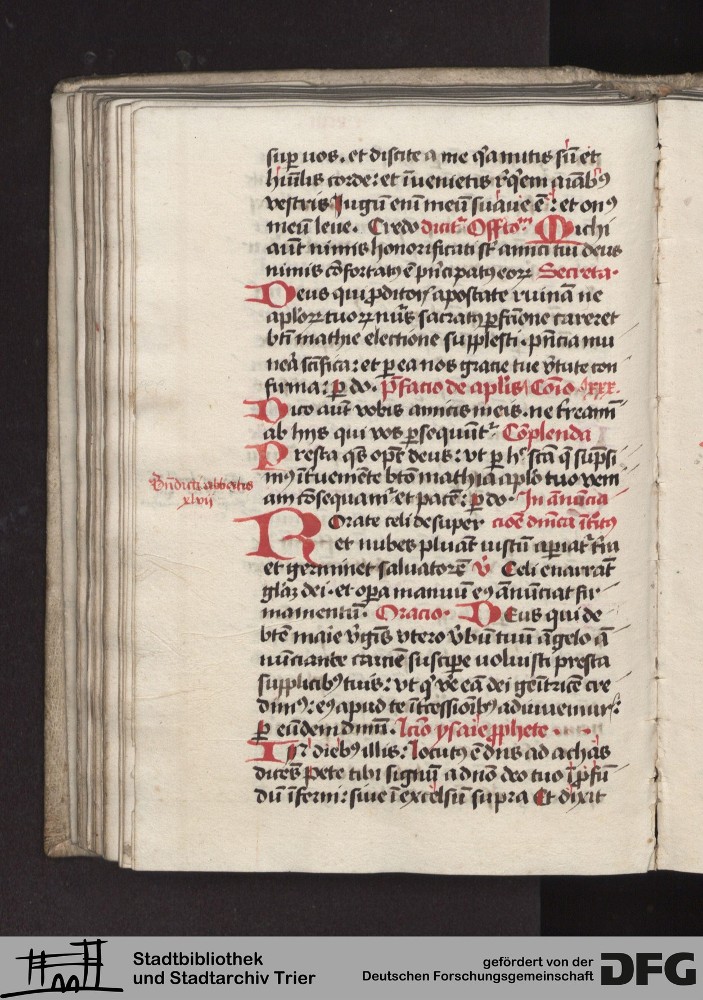 sup uos. et discite a me qa mitis sũ et
hũilis corde: et ĩuenietis rq̃em aĩabꝰ
vestris Iugũ enĩ meũ suaue ẽ: et onꝰ
meũ leue. Credo dicit̃ Offto᷒ Michi
aũt nimis honorificati st̃ amici tui deus
nimis cõfortatꝰ ẽ prĩcipatꝰ eoꝝ Secreta.
Deus qui ꝓditoris apostate ruinã ne
apl̃oꝝ tuoꝝ nũs sacratꝰ ꝑfc̃ione careret
bti mathie electione supplesti. pñcia mu
nea sc̃ifica: et ꝑ ea nos gratie tue ṽtute con
firma: ꝑ do. p̃facio de apl̃is Cõio xxx.
Dico aũt vobis amicis meis. ne t̃reamĩ
ab hijs qui vos ꝑsequunt̃. Cõplenda
Presta qs̃ opt̃ deus: vt ꝑ h̃ sc̃ta q̃ sũpsi
mꝰ ĩt̃uemẽte bt̃o mathia apl̃o tuo veni
am cõsequam̃ et pacẽ: ꝑ do. In ãnũcia
Bñdicti abbatis
xlvij
ROrate celi desuper cioẽ dñica ĩt̃itꝰ
et nubes pluãt iustũ aꝑiat̃ t̃ra
et germinet saluatorẽ v̾ Celi enarrãt
gl̃aꝫ dei. et oꝑa manuũ eꝰ ãnũciat fir
mamentũ. Oracio. DEus qui de
bt̃e maĩe ṽgĩs vtero ṽbũ tuũ ãgelo ã
nũciante carnẽ suscipe uoluisti presta
supplicibꝰ tuis: vt q̃ ṽe eã dei genĩt̃cẽ cre
dimꝰ: eꝰ apud te ĩt̃cessiõibꝰ adiuuemur:
ꝑ eũdem dñm. lc̃io ysaie ꝓphete.
In diebꝰ illis: locutꝰ ẽ dñs ad achas
dicẽs pete tibi signũ a dño deo tuo ĩ ꝓfũ
dũ ĩferni: siue ĩ excelsũ supra Et dixit
Stadtbibliothek
und Stadtarchiv Trier
gefördert von der
Deutschen Forschungsgemeinschaft
DFG